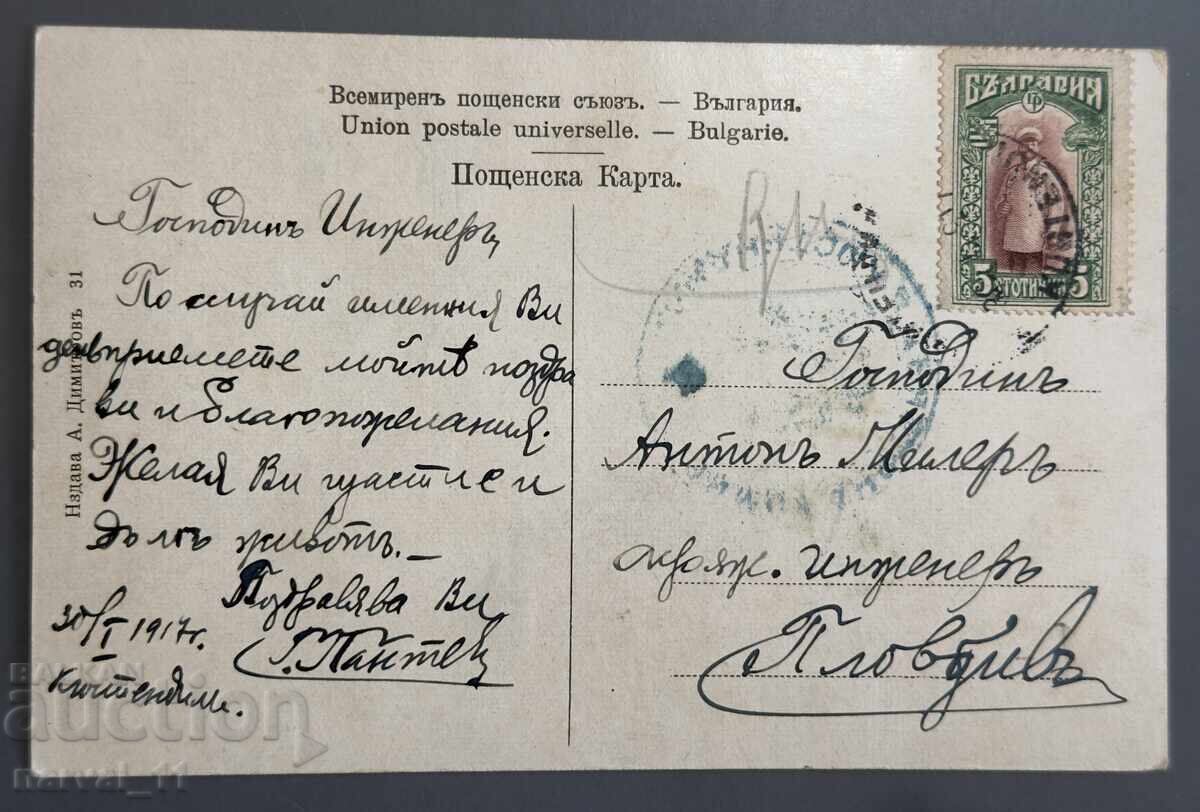 Всемиренъ пощенски съюзъ. — България.
Union postale universelle. — Bulgarie.
Пощенска Карта.
Господинъ Инженеръ,
По случай именния Ви
день приемете моитѣ поздра
ви и благопожелания.
Желая Ви щастие и
дълъгъ животъ. —
Поздравява Ви,
Г. Пантев
30/I 1917 г.
Кюстендилъ.
Издава А. Димитровъ 31
БЪЛГАРИЯ
5 СТОТИНКИ 5
Господинъ
Антонъ Милеръ
инженеръ
Пловдивъ
BALKAN
auction
narval_11